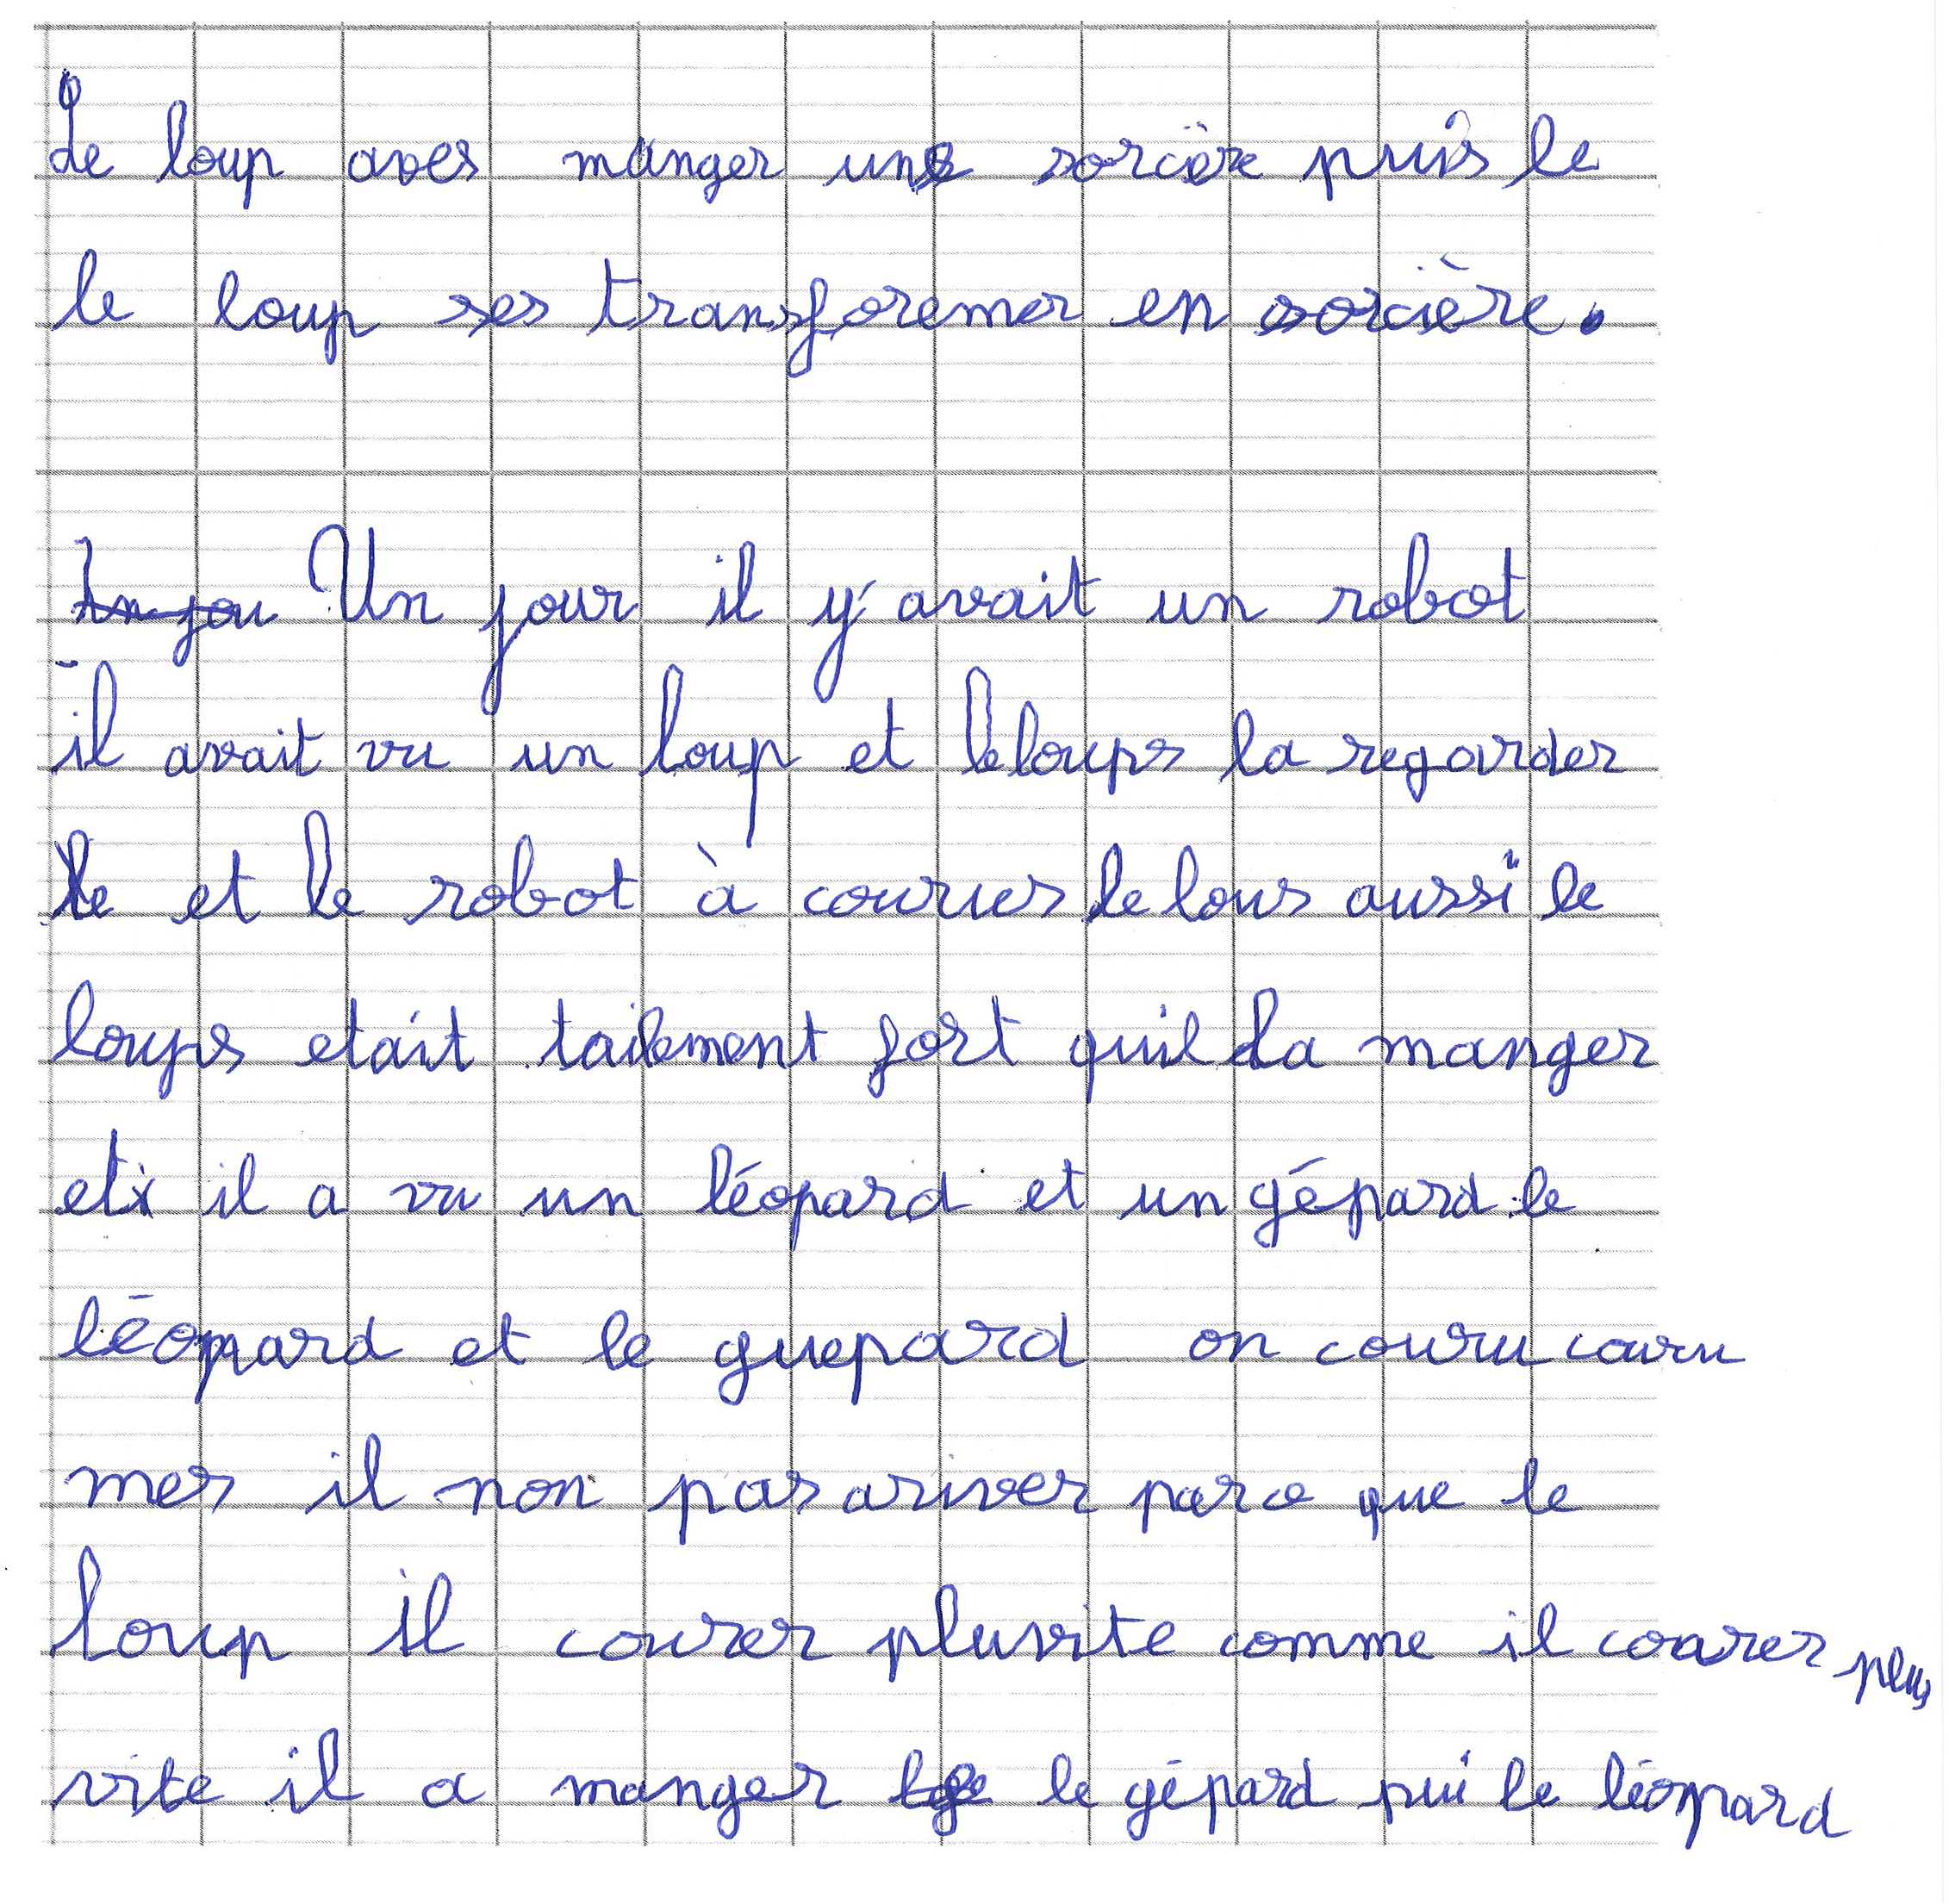 Le loup aves manger une sorcière puis le
le loup ses transforemer en sorcière.
Un jou Un jour il y avait un robot
il avait vu un loup et le loups la regarder
le et le robot à courues le lous aussi le
loups etait tailement fort quil la manger
et il a vu un léopard et un gépard le
léopard et le guepard on couru couru
mes il non pas ariver parce que le
loup il courer pluvite comme il courer plus
vite il a manger le gépard pui le léopard